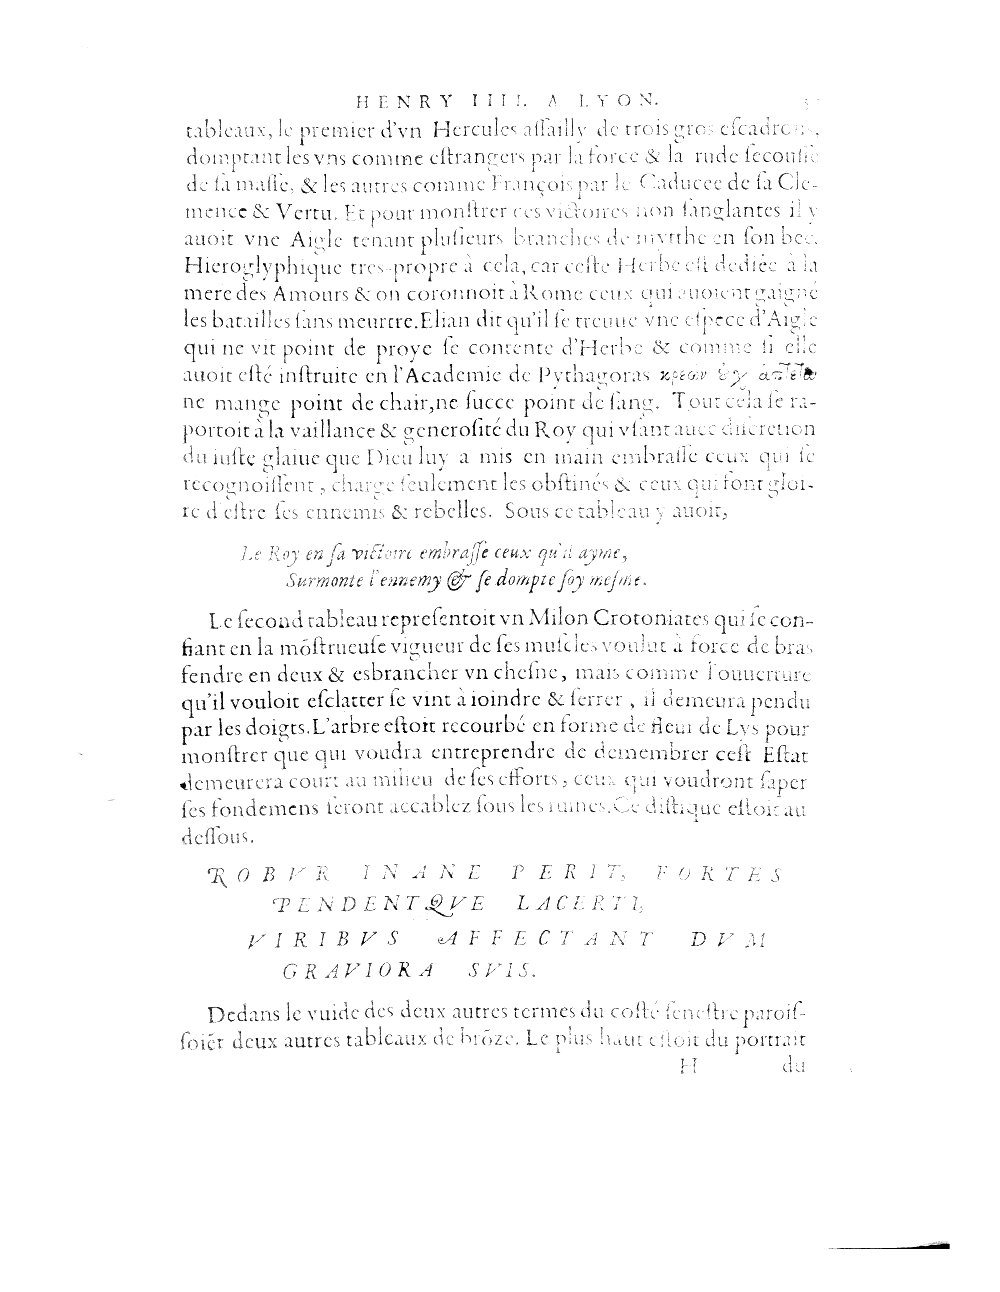 HENRY IIII. A LYON.
tableaux, le premier d'vn Hercules aſſailly de trois gros eſcadrons,
domptant les vns comme eſtrangers par la force & la rude ſecouſſe
de ſa maſſe, & les autres comme François par le Caducee de ſa Cle-
mence & Vertu. Et pour monſtrer ces victoires non ſanglantes il y
auoit vne Aigle tenant pluſieurs branches de myrthe en ſon bec,
Hieroglyphique tres-propre à cela, car ceſte Herbe eſt dediée à la
mere des Amours & on coronnoit à Rome ceux qui auoient gaigné
les batailles ſans meurtre. Elian dit qu'il ſe treuue vne eſpece d'Aigle
qui ne vit point de proye ſe contente d'Herbe & comme ſi elle
auoit eſté inſtruite en l'Academie de Pythagoras
ne mange point de chair, ne ſucce point de ſang. Tout cela ſe ra-
portoit à la vaillance & generoſité du Roy qui vſant auec diſcretion
du iuſte glaiue que Dieu luy a mis en main embraſſe ceux qui ſe
recognoiſſent, charge ſeulement les obſtinés & ceux qui font gloi-
re d'eſtre ſes ennemis & rebelles. Sous ce tableau y auoit,
Le Roy en ſa victoire embraſſe ceux qu'il ayme,
Surmonte l'ennemy & ſe dompte ſoy meſme.
Le ſecond tableau repreſentoit vn Milon Crotoniates qui ſe con-
fiant en la mõſtrueuſe vigueur de ſes muſcles voulut à force de bras
fendre en deux & esbrancher vn cheſne, mais comme l'ouuerture
qu'il vouloit eſclatter ſe vint à ioindre & ſerrer, il demeura pendu
par les doigts. L'arbre eſtoit recourbé en forme de fleur de Lys pour
monſtrer que qui voudra entreprendre de demembrer ceſt Eſtat
demeurera court au milieu de ſes efforts, ceux qui voudront ſaper
ſes fondemens ſeront accablez ſous les ruines. Ce diſtique eſtoit au
deſſous.
ROBVR INANE PERIT, FORTES
PENDENTQVE LACERTI,
VIRIBVS AFFECTANT DVM
GRAVIORA SVIS.
Dedans le vuide des deux autres termes du coſté ſeneſtre paroiſ-
ſoiẽt deux autres tableaux de brõze. Le plus haut eſtoit du portrait
H du